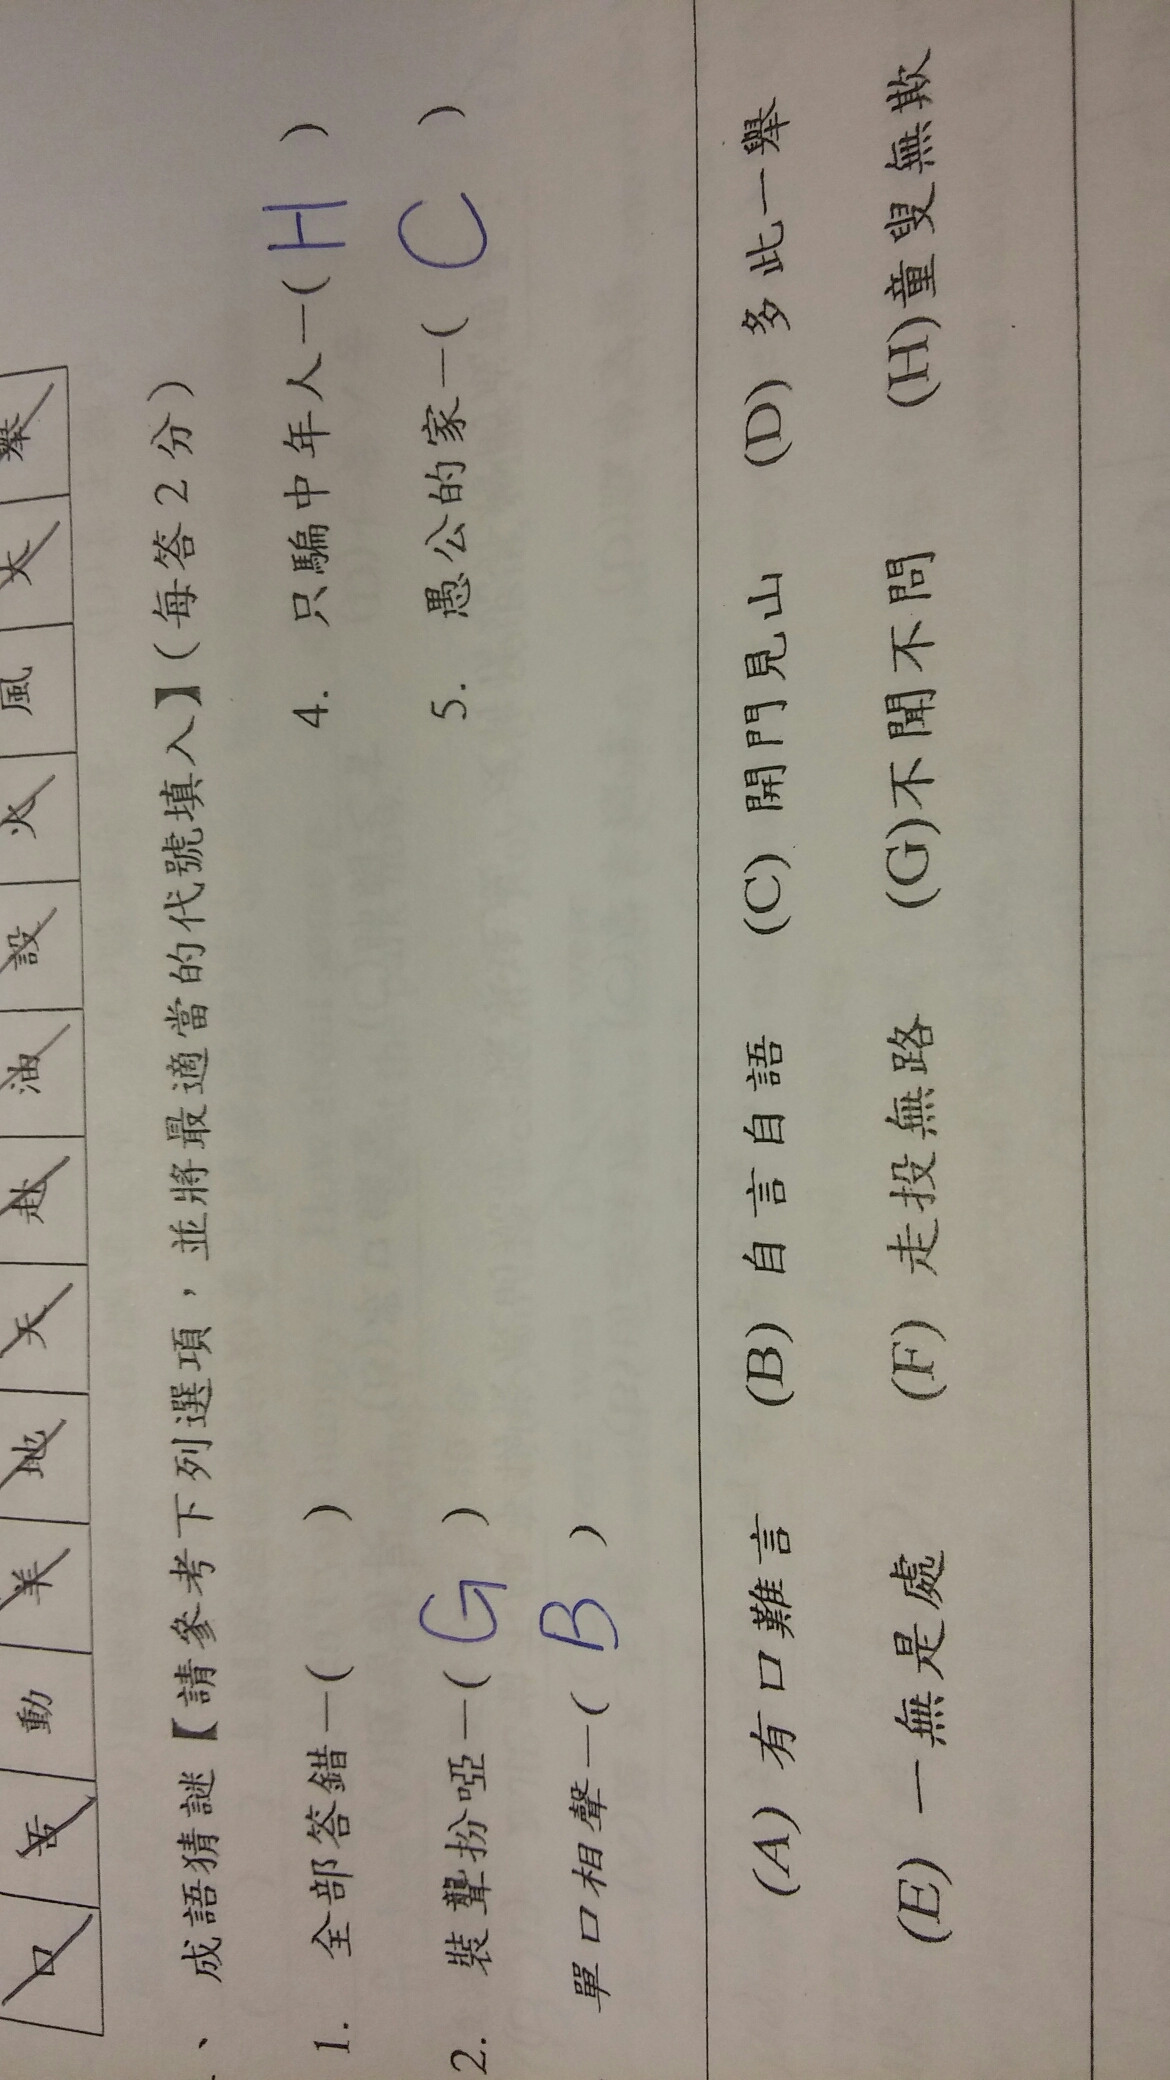 口 舌 動 羊 地 天 赴 油 設 火 風 大 舉
、 成語猜謎【請參考下列選項，並將最適當的代號填入】（每答2分）
1. 全部答錯—( ) 4. 只騙中年人—( H )
2. 裝聾扮啞—( G ) 5. 愚公的家—( C )
單口相聲—( B )
(A) 有口難言 (B) 自言自語 (C) 開門見山 (D) 多此一舉
(E) 一無是處 (F) 走投無路 (G)不聞不問 (H)童叟無欺